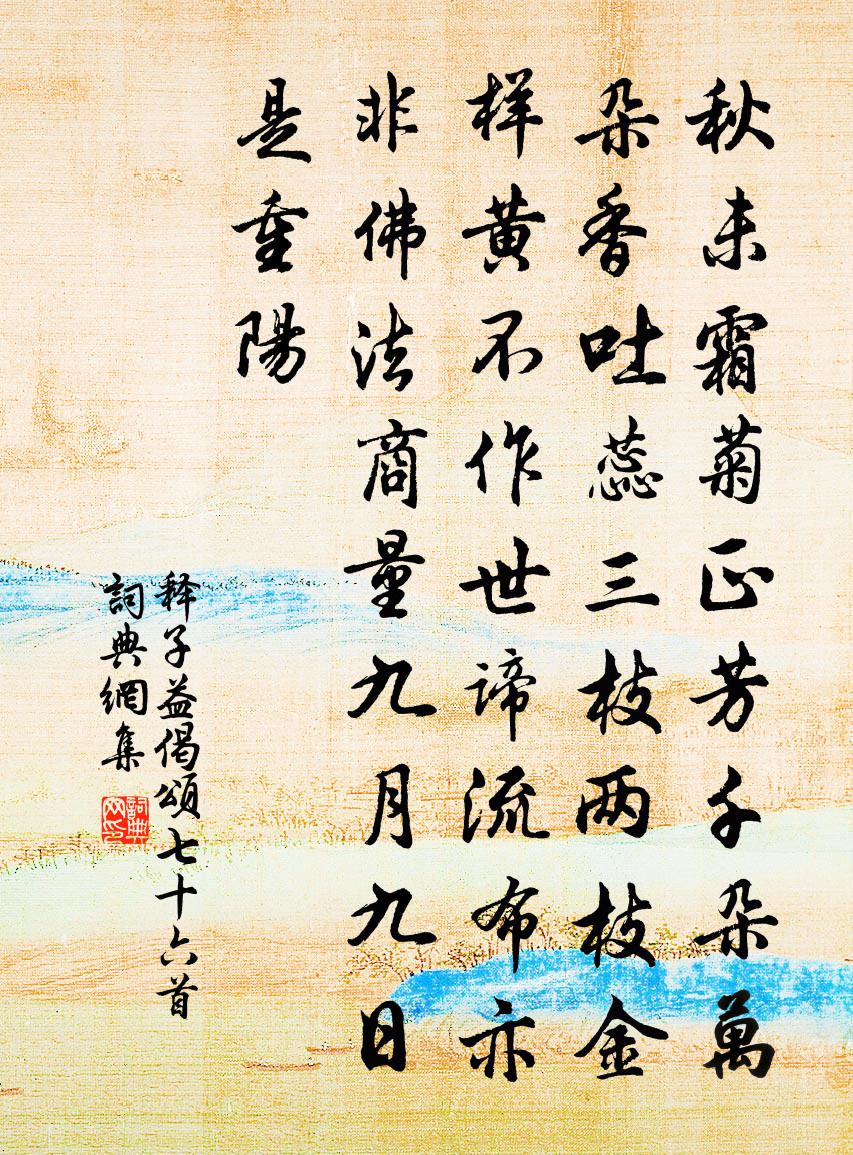 秋未霜菊正芳千朵萬
朵香吐蕊三枝两枝金
样黄不作世谛流布亦
非佛法商量九月九日
是重陽
释子益偈頌七十六首
詞典網集
詞典网印